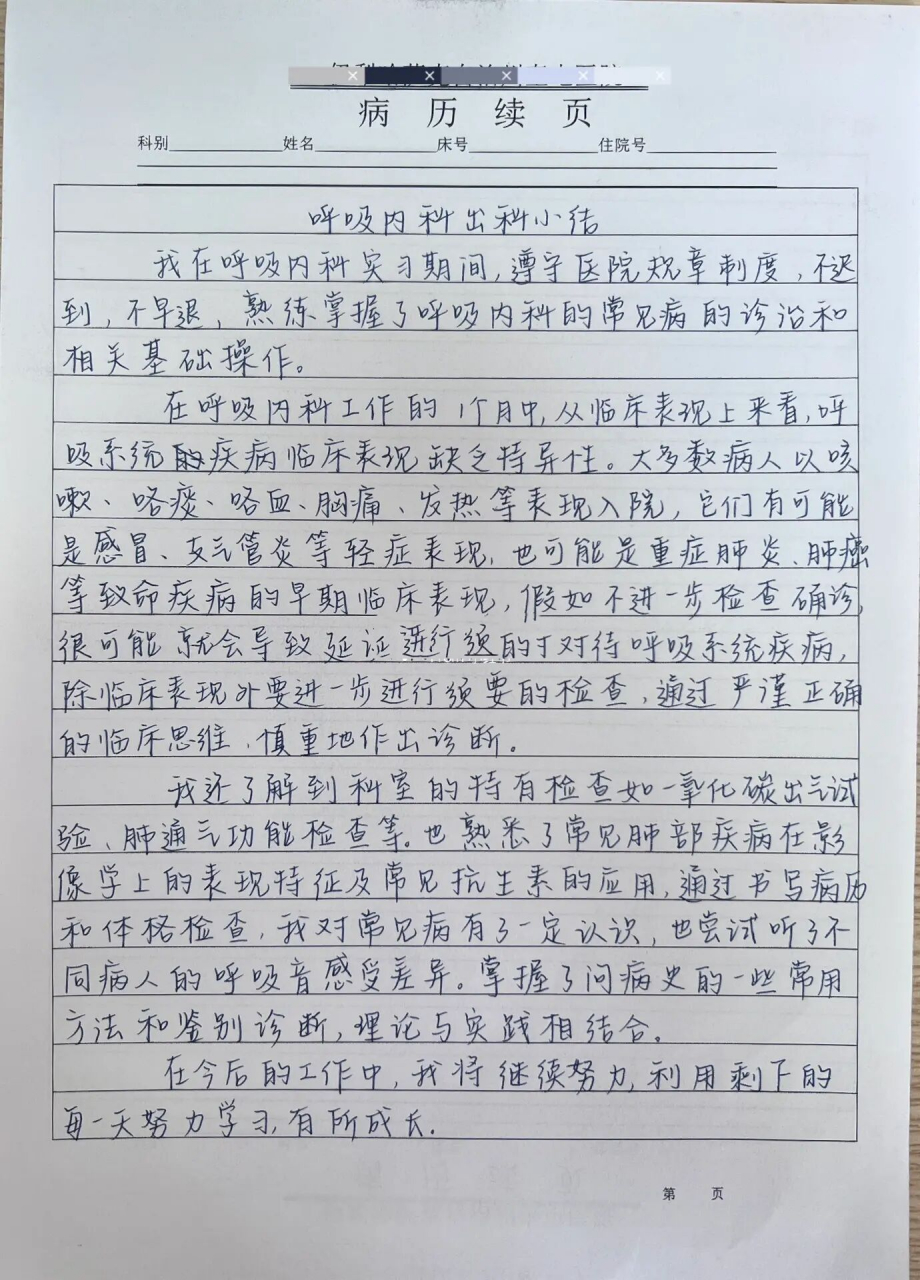 病 历 续 页
科别 姓名 床号 住院号
呼吸内科出科小结
我在呼吸内科实习期间，遵守医院规章制度，不迟
到，不早退，熟练掌握了呼吸内科的常见病的诊治和
相关基础操作。
在呼吸内科工作的1个月中，从临床表现上来看，呼
吸系统的疾病临床表现缺乏特异性。大多数病人以咳
嗽、咯痰、咯血、胸痛、发热等表现入院，它们有可能
是感冒、支气管炎等轻症表现，也可能是重症肺炎、肺癌
等致命疾病的早期临床表现，假如不进一步检查确诊，
很可能就会导致延证进行须的对待呼吸系统疾病，
除临床表现外要进一步进行须要的检查，通过严谨正确
的临床思维，慎重地作出诊断。
我还了解到科室的特有检查如一氧化碳出气试
验、肺通气功能检查等。也熟悉了常见肺部疾病在影
像学上的表现特征及常见抗生素的应用，通过书写病历
和体格检查，我对常见病有了一定认识，也尝试听了不
同病人的呼吸音感受差异。掌握了问病史的一些常用
方法和鉴别诊断，理论与实践相结合。
在今后的工作中，我将继续努力，利用剩下的
每一天努力学习，有所成长．
第 页